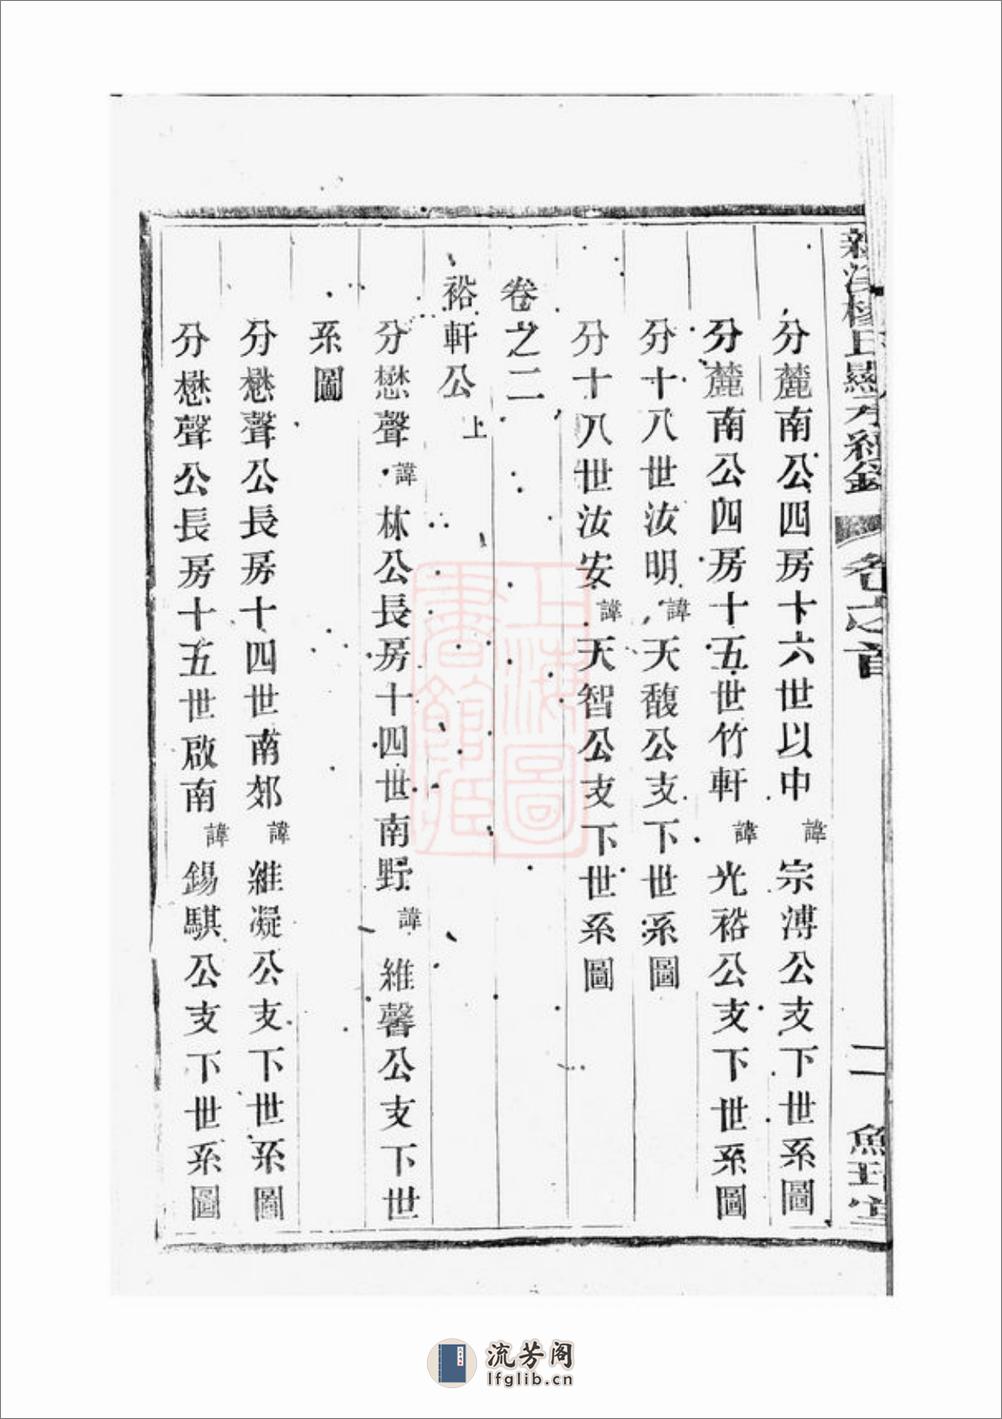 分麓南公四房十六世以中諱宗溥公支下世系圖
分麓南公四房十五世竹軒諱光裕公支下世系圖
分十八世汝明諱天馥公支下世系圖
分十八世汝安諱天智公支下世系圖
卷之二
裕軒公上
分懋聲諱林公長房十四世南野諱維馨公支下世
系圖
分懋聲公長房十四世南郊諱維凝公支下世系圖
分懋聲公長房十五世啟南諱錫騏公支下世系圖
卷之首
二
上海圖
書館藏
流芳阁
lfglib.cn